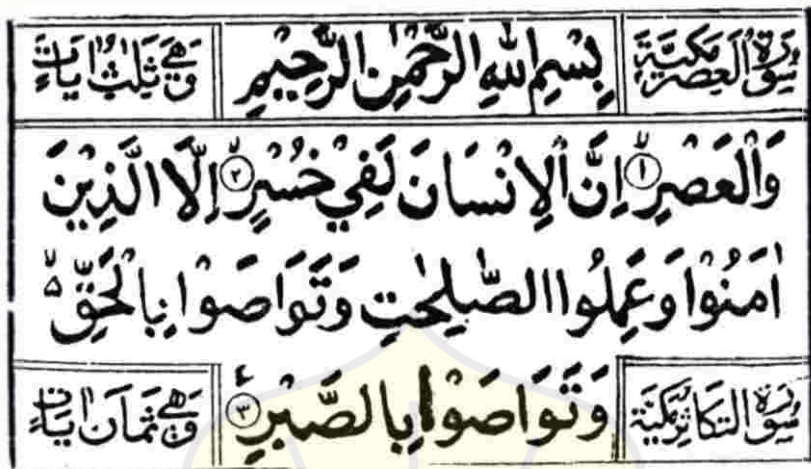 سُوْرَةُ الْعَصْرِ مَكِّيَّةٌ بِسْمِ اللهِ الرَّحْمٰنِ الرَّحِيْمِ وَهِيَ ثَلٰثُ اٰيَاتٍ
وَالْعَصْرِ ١ اِنَّ الْاِنْسَانَ لَفِيْ خُسْرٍ ٢ اِلَّا الَّذِيْنَ
اٰمَنُوْا وَعَمِلُوا الصّٰلِحٰتِ وَتَوَاصَوْا بِالْحَقِّ ۵
سُوْرَةُ التَّكَاثُرِ مَكِّيَّةٌ وَتَوَاصَوْا بِالصَّبْرِ ٣ وَهِيَ ثَمَانُ اٰيَاتٍ